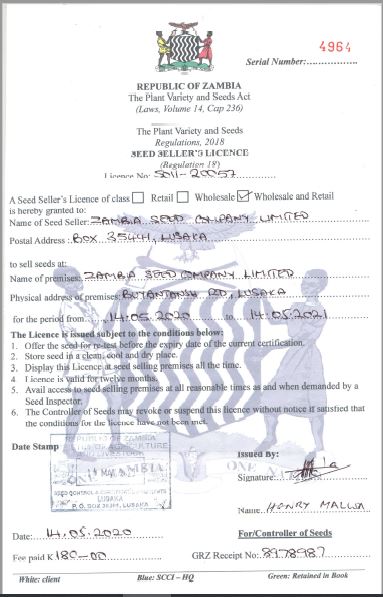 4964
Serial Number:
REPUBLIC OF ZAMBIA
The Plant Variety and Seeds Act
(Laws, Volume 14, Cap 236)
The Plant Variety and Seeds
Regulations, 2018
SEED SELLER'S LICENCE
(Regulation 18)
Licence No: 5011-20057
A Seed Seller's Licence of class Retail Wholesale Wholesale and Retail
is hereby granted to:
Name of Seed Seller: ZAMBIA SEED COMPANY LIMITED
Postal Address: BOX 35441, LUSAKA
to sell seeds at:
Name of premises: ZAMBIA SEED COMPANY LIMITED
Physical address of premises: BUYANTANSHI RD, LUSAKA
for the period from 14.05.2020 to 14.05.2021
The Licence is issued subject to the conditions below:
1. Offer the seed for re-test before the expiry date of the current certification.
2. Store seed in a clean, cool and dry place.
3. Display this Licence at seed selling premises all the time.
4 Licence is valid for twelve months.
5. Avail access to seed selling premises at all reasonable times as and when demanded by a
Seed Inspector.
6. The Controller of Seeds may revoke or suspend this licence without notice if satisfied that
the conditions for the licence have not been met.
Date Stamp
REPUBLIC OF ZAMBIA
MAY
LUSAKA
P. O. BOX LUSAKA
ONE
Issued By:
Signature:
Name HENRY MALWA
Date: 14.05.2020
For/Controller of Seeds
Fee paid K 180-00
GRZ Receipt No: 8978987
White: client Blue: SCCI – HQ Green: Retained in Book